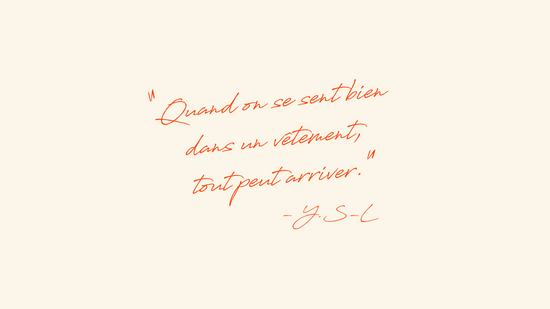 "Quand on se sent bien
dans un vêtement,
tout peut arriver."
-Y.S-L